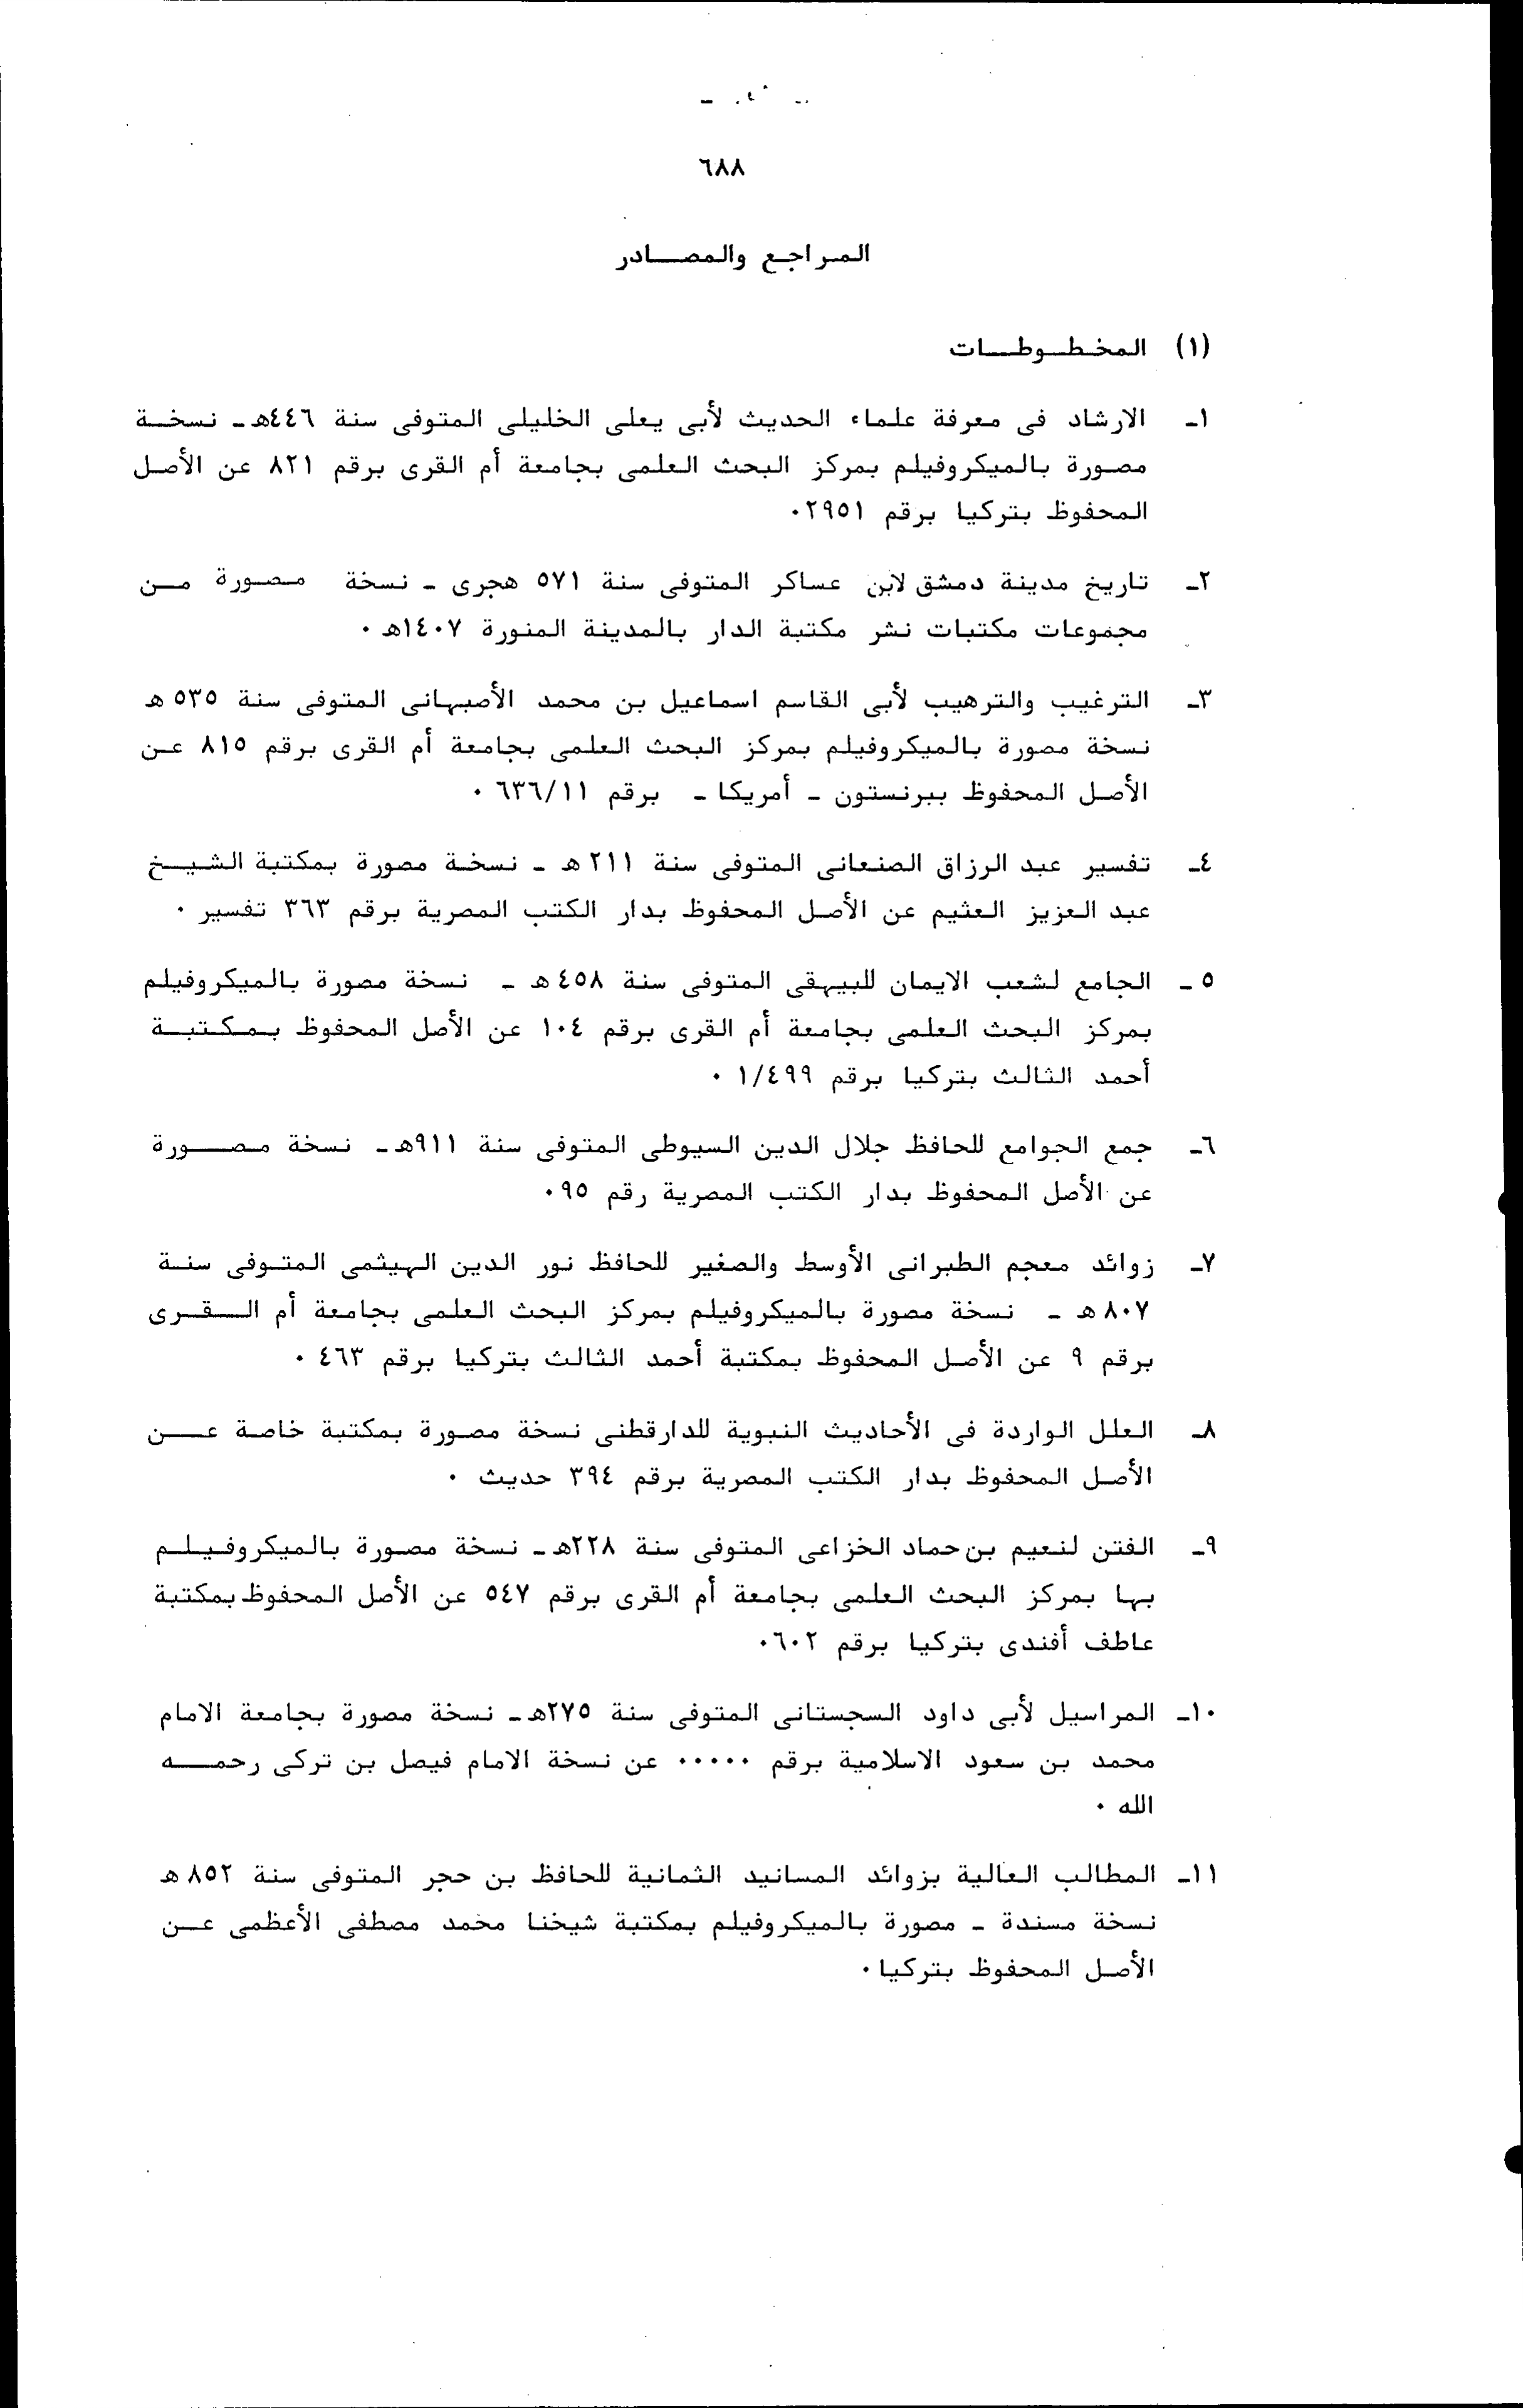 ٦٨٨
المراجع والمصادر
(١) المخطوطات
١ـ الارشاد فى معرفة علماء الحديث لأبى يعلى الخليلى المتوفى سنة ٤٤٦هـ ـ نسخة
مصورة بالميكروفيلم بمركز البحث العلمى بجامعة أم القرى برقم ٨٢١ عن الأصل
المحفوظ بتركيا برقم ٢٩٥١٠
٢ـ تاريخ مدينة دمشق لابن عساكر المتوفى سنة ٥٧١ هجرى ـ نسخة مصورة من
مجموعات مكتبات نشر مكتبة الدار بالمدينة المنورة ١٤٠٧هـ ٠
٣ـ الترغيب والترهيب لأبى القاسم اسماعيل بن محمد الأصبهانى المتوفى سنة ٥٣٥ هـ
نسخة مصورة بالميكروفيلم بمركز البحث العلمى بجامعة أم القرى برقم ٨١٥ عن
الأصل المحفوظ ببرنستون ـ أمريكا ـ برقم ٦٣٦/١١ ٠
٤ـ تفسير عبد الرزاق الصنعانى المتوفى سنة ٢١١ هـ ـ نسخة مصورة بمكتبة الشيخ
عبد العزيز العثيم عن الأصل المحفوظ بدار الكتب المصرية برقم ٣٦٣ تفسير ٠
٥ ـ الجامع لشعب الايمان للبيهقى المتوفى سنة ٤٥٨ هـ ـ نسخة مصورة بالميكروفيلم
بمركز البحث العلمى بجامعة أم القرى برقم ١٠٤ عن الأصل المحفوظ بمكتبة
أحمد الثالث بتركيا برقم ١/٤٩٩ ٠
٦ـ جمع الجوامع للحافظ جلال الدين السيوطى المتوفى سنة ٩١١هـ ـ نسخة مصورة
عن الأصل المحفوظ بدار الكتب المصرية رقم ٩٥٠
٧ـ زوائد معجم الطبرانى الأوسط والصغير للحافظ نور الدين الهيثمى المتوفى سنة
٨٠٧ هـ ـ نسخة مصورة بالميكروفيلم بمركز البحث العلمى بجامعة أم القرى
برقم ٩ عن الأصل المحفوظ بمكتبة أحمد الثالث بتركيا برقم ٤٦٣ ٠
٨ـ العلل الواردة فى الأحاديث النبوية للدارقطنى نسخة مصورة بمكتبة خاصة عن
الأصل المحفوظ بدار الكتب المصرية برقم ٣٩٤ حديث ٠
٩ـ الفتن لنعيم بن حماد الخزاعى المتوفى سنة ٢٢٨هـ ـ نسخة مصورة بالميكروفيلم
بها بمركز البحث العلمى بجامعة أم القرى برقم ٥٤٧ عن الأصل المحفوظ بمكتبة
عاطف أفندى بتركيا برقم ٦٠٢٠
١٠ـ المراسيل لأبى داود السجستانى المتوفى سنة ٢٧٥هـ ـ نسخة مصورة بجامعة الامام
محمد بن سعود الاسلامية برقم ٠٠٠٠٠ عن نسخة الامام فيصل بن تركى رحمه
الله ٠
١١ـ المطالب العالية بزوائد المسانيد الثمانية للحافظ بن حجر المتوفى سنة ٨٥٢ هـ
نسخة مسندة ـ مصورة بالميكروفيلم بمكتبة شيخنا محمد مصطفى الأعظمى عن
الأصل المحفوظ بتركيا٠